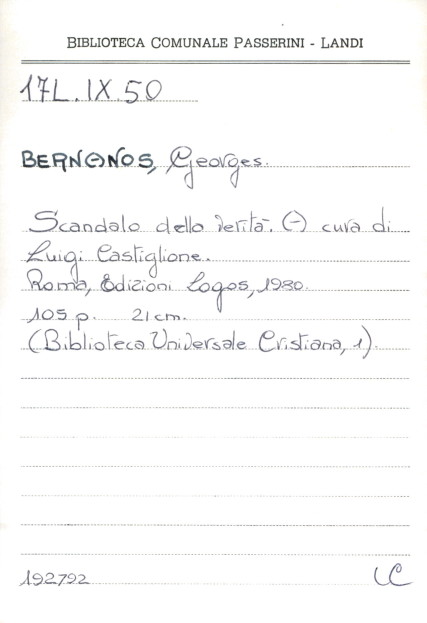 BIBLIOTECA COMUNALE PASSERINI - LANDI
17L.IX.50
BERNANOS, Georges.
Scandalo della verità. A cura di
Luigi Castiglione.
Roma, Edizioni Logos, 1980.
105 p. 21 cm.
(Biblioteca Universale Cristiana, 1).
192792